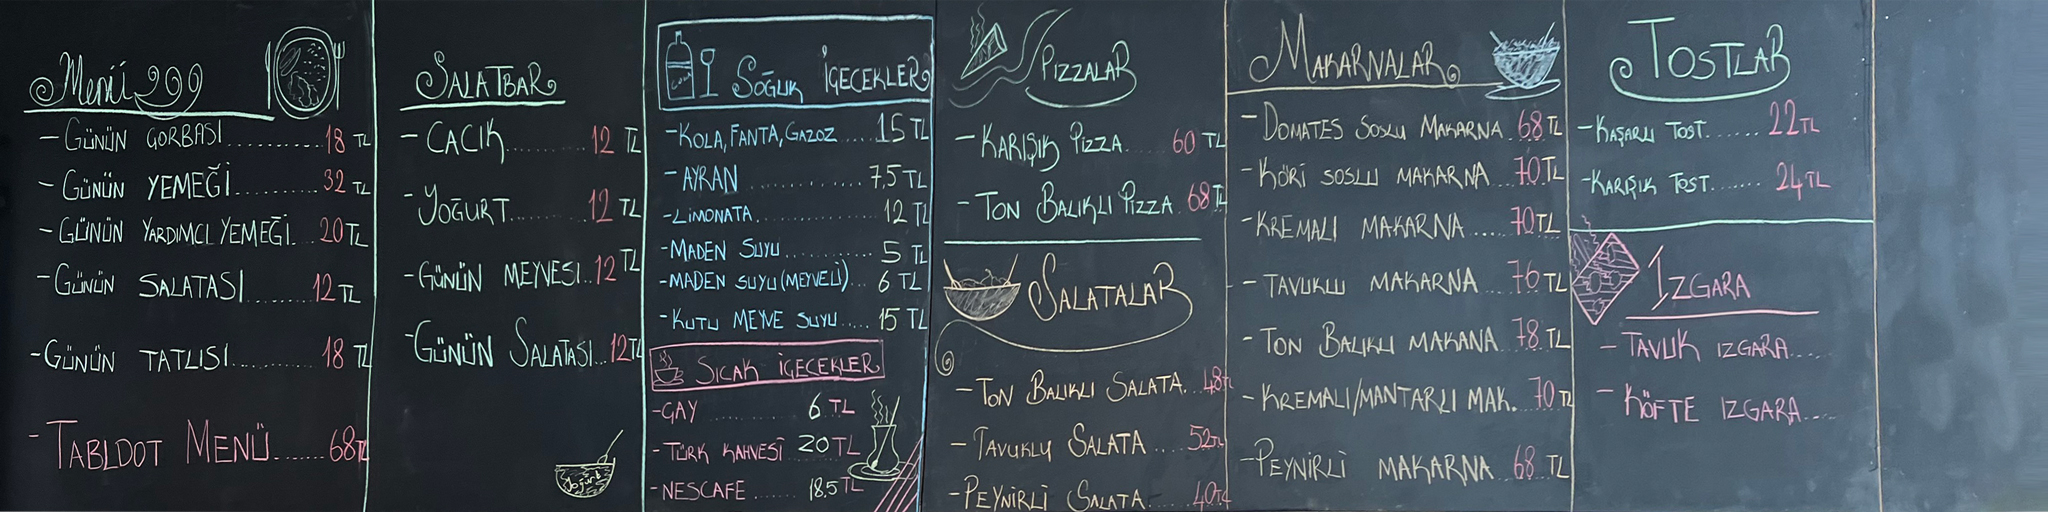 Menü
-GÜNÜN ÇORBASI............18 TL
-GÜNÜN YEMEĞİ............32 TL
-GÜNÜN YARDIMCI YEMEĞİ...20 TL
-GÜNÜN SALATASI..........12 TL
-GÜNÜN TATLISI...........18 TL
-TABLDOT MENÜ.......68 TL
SALATBAR
-CACIK............12 TL
-YOĞURT..........12 TL
-GÜNÜN MEYVESİ...12 TL
-GÜNÜN SALATASI...12 TL
Yoğurt
SOĞUK İÇECEKLER
-KOLA, FANTA, GAZOZ.....15 TL
-AYRAN ............ 7,5 TL
-LİMONATA............12 TL
-MADEN SUYU............5 TL
-MADEN SUYU (MEYVELİ)...6 TL
-KUTU MEYVE SUYU.....15 TL
SICAK İÇECEKLER
-ÇAY ............ 6 TL
-TÜRK KAHVESİ 20 TL
-NESCAFE ....... 18,5 TL
PİZZALAR
-KARIŞIK PİZZA.....60 TL
-TON BALIKLI PİZZA 68 TL
SALATALAR
-TON BALIKLI SALATA..48 TL
-TAVUKLU SALATA ...52 TL
-PEYNİRLİ SALATA....40 TL
MAKARNALAR
-DOMATES SOSLU MAKARNA 68 TL
-KÖRİ SOSLU MAKARNA..70 TL
-KREMALI MAKARNA.....70 TL
-TAVUKLU MAKARNA 76 TL
-TON BALIKLI MAKANA.78 TL
-KREMALI/MANTARLI MAK. 70 TL
-PEYNİRLİ MAKARNA..68 TL
TOSTLAR
-KAŞARLI TOST........22 TL
-KARIŞIK TOST........24 TL
IZGARA
-TAVUK IZGARA.....
-KÖFTE IZGARA.....